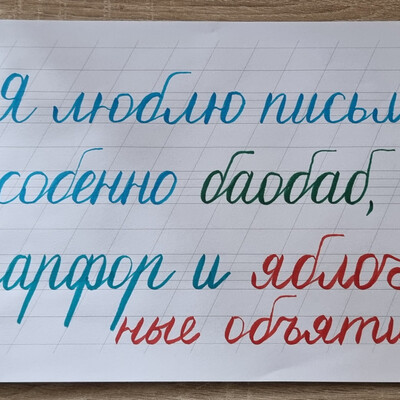 Я люблю письм
собенно баобаб,
арфор и яблоч
ные объяти